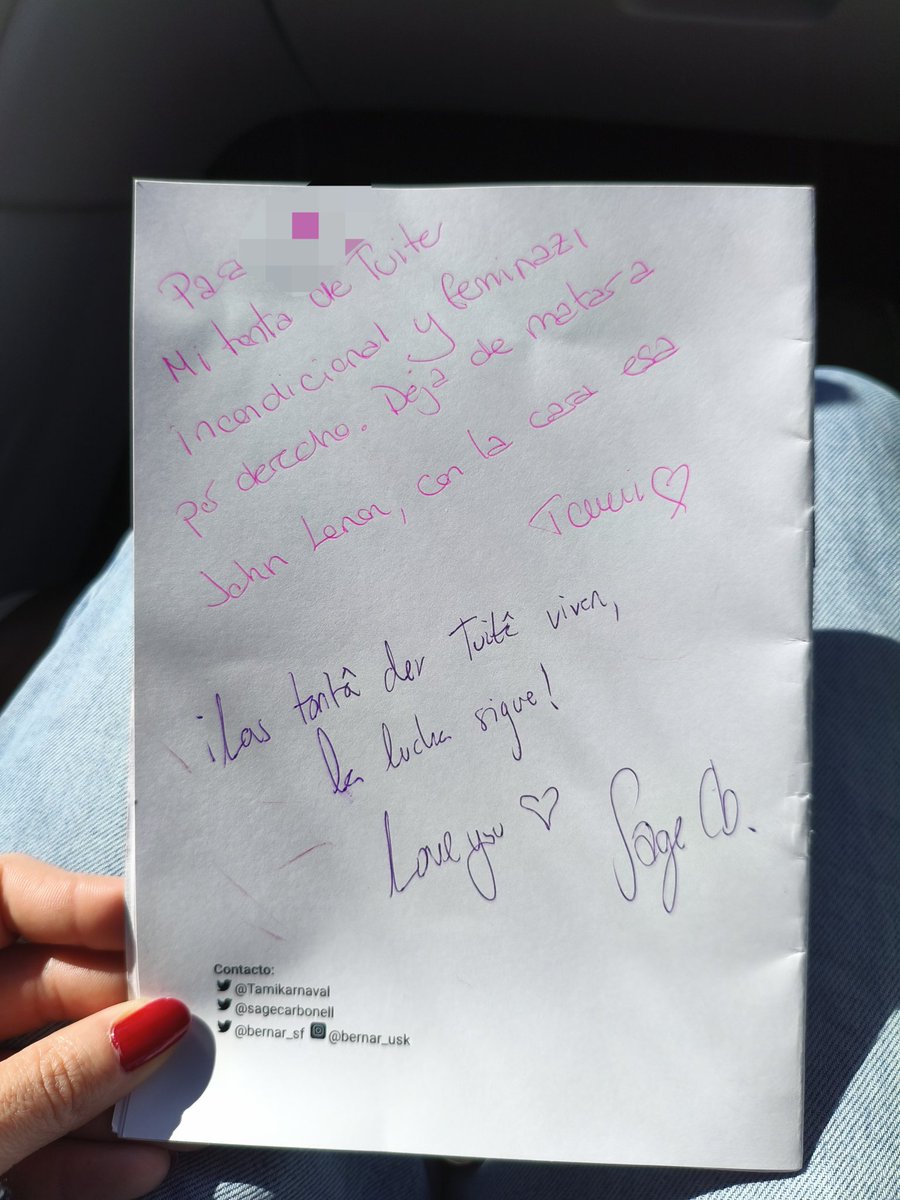 Para
Mi tonta de Tuiter
incondicional y feminazi
por derecho. Deja de matar a
John Lenon, con la cara esa
Tami
¡Las tontâ der Tuitê viven,
la lucha sigue!
Love you
Sage Cb.
Contacto:
@Tamikarnaval
@sagecarbonell
@bernar_sf @bernar_usk